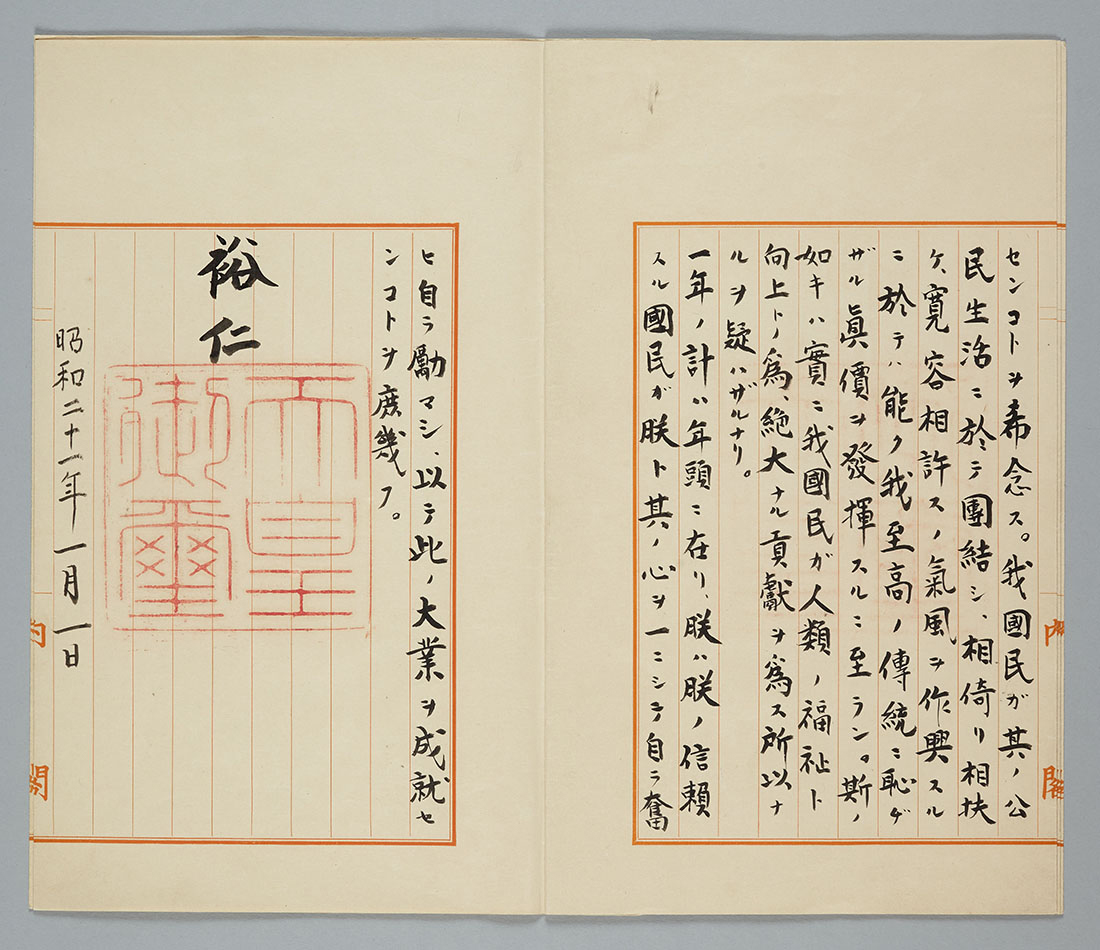 センコトヲ希念ス。我國民ガ其ノ公
民生活ニ於テ團結シ、相倚リ相扶
ケ、寛容相許スノ氣風ヲ作興スル
ニ於テハ能ク我至高ノ傳統ニ恥ヂ
ザル眞價ヲ發揮スルニ至ラン。斯ノ
如キハ實ニ我國民ガ人類ノ福祉ト
向上トノ爲、絶大ナル貢獻ヲ爲ス所以ナ
ルヲ疑ハザルナリ。
一年ノ計ハ年頭ニ在リ、朕ハ朕ノ信頼
スル國民ガ朕ト其ノ心ヲ一ニシテ自ラ奮
内閣
ヒ自ラ勵マシ、以テ此ノ大業ヲ成就セ
ンコトヲ庶幾フ。
裕仁
天皇
御璽
昭和二十一年一月一日
内閣